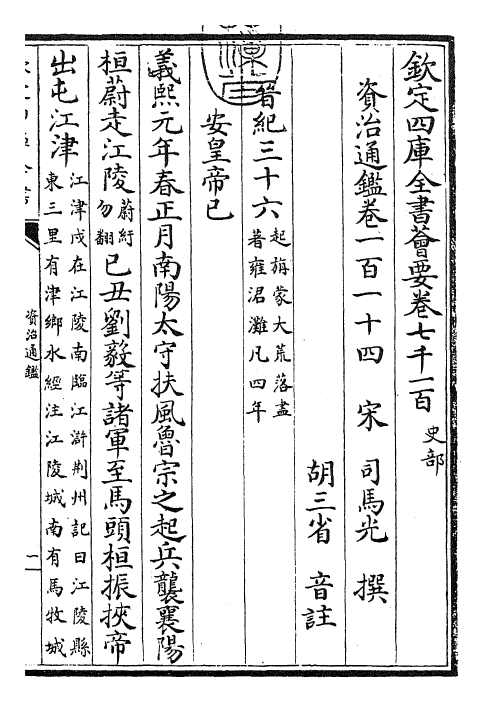 欽定四庫全書薈要卷七千一百 史部
資治通鑑卷一百一十四 宋 司馬光 撰
胡三省 音註
晉紀三十六 起旃蒙大荒落盡
著雍涒灘凡四年
安皇帝己
義熙元年春正月南陽太守扶風魯宗之起兵襲襄陽
桓蔚走江陵 蔚紆
勿翻
己丑劉毅等諸軍至馬頭桓振挾帝
出屯江津 江津戍在江陵南臨江滸荆州記曰江陵縣
東三里有津鄉水經注江陵城南有馬牧城
資治通鑑
一